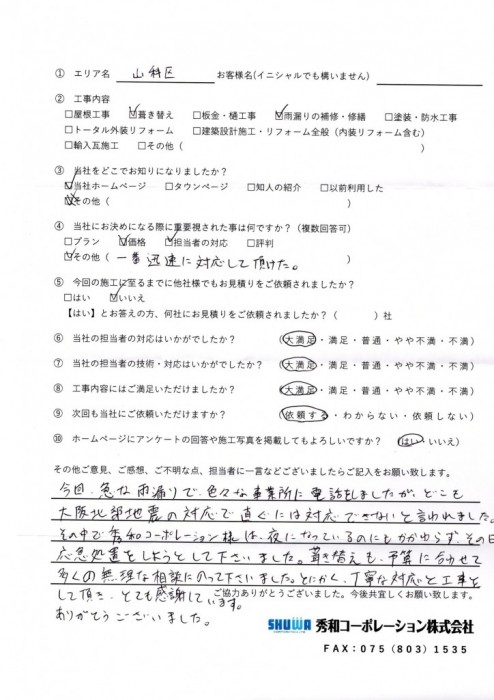 ① エリア名 山科区 お客様名(イニシャルでも構いません)
② 工事内容
□屋根工事 ☑葺き替え □板金・樋工事 ☑雨漏りの補修・修繕 □塗装・防水工事
□トータル外装リフォーム □建築設計施工・リフォーム全般(内装リフォーム含む)
□輸入瓦施工 □その他( )
③ 当社をどこでお知りになりましたか?
☑当社ホームページ □タウンページ □知人の紹介 □以前利用した
☑その他( )
④ 当社にお決めになる際に重要視された事は何ですか?(複数回答可)
□プラン ☑価格 ☑担当者の対応 □評判
☑その他(一番迅速に対応して頂けた。 )
⑤ 今回の施工に至るまでに他社様でもお見積りをご依頼されましたか?
□はい ☑いいえ
【はい】とお答えの方、何社にお見積りをご依頼されましたか?( )社
⑥ 当社の担当者の対応はいかがでしたか? 大満足・満足・普通・やや不満・不満)
⑦ 当社の担当者の技術・対応はいかがでしたか? 大満足・満足・普通・やや不満・不満)
⑧ 工事内容にはご満足いただけましたか? 大満足・満足・普通・やや不満・不満)
⑨ 次回も当社にご依頼いただけますか? 依頼する・わからない・依頼しない)
⑩ ホームページにアンケートの回答や施工写真を掲載してもよろしいですか? (はい・いいえ)
その他ご意見、ご感想、ご不明な点、担当者に一言などございましたらご記入をお願い致します。
今回、急な雨漏りで、色々な事業所に電話をしましたが、どこも
大阪北部地震の対応で直ぐには対応できないと言われました。
その中で秀和コーポレーション様は、夜になっているのにもかかわらず、その日
応急処置をしようとして下さいました。葺き替えも、予算に合わせて
多くの無理な相談にのって下さいました。とにかく、丁寧な対応と工事を
して頂き、とても感謝しています。
ご協力ありがとうございました。今後共宜しくお願い致します。
ありがとうございました。
SHUWA 秀和コーポレーション株式会社
FAX:075(803)1535